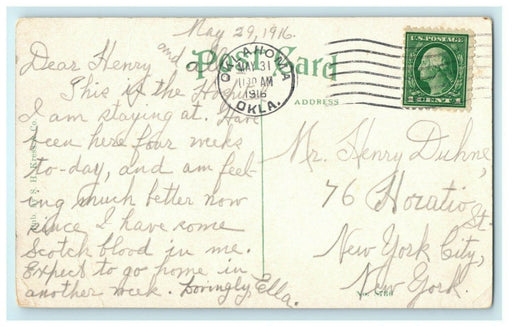 May 29, 1916.
Post Card
Dear Henry and all
This is the
I am staying at. Have
been here four weeks
to-day, and am feel-
ing much better now
since I have some
Scotch blood in me.
Expect to go home in
another week. Lovingly, Ella.
OKLAHOMA
MAY 31
AM
1916
OKLA.
U.S. POSTAGE
ADDRESS
Mr. Henry Duhne,
76 Horatio St.
New York City,
New York.